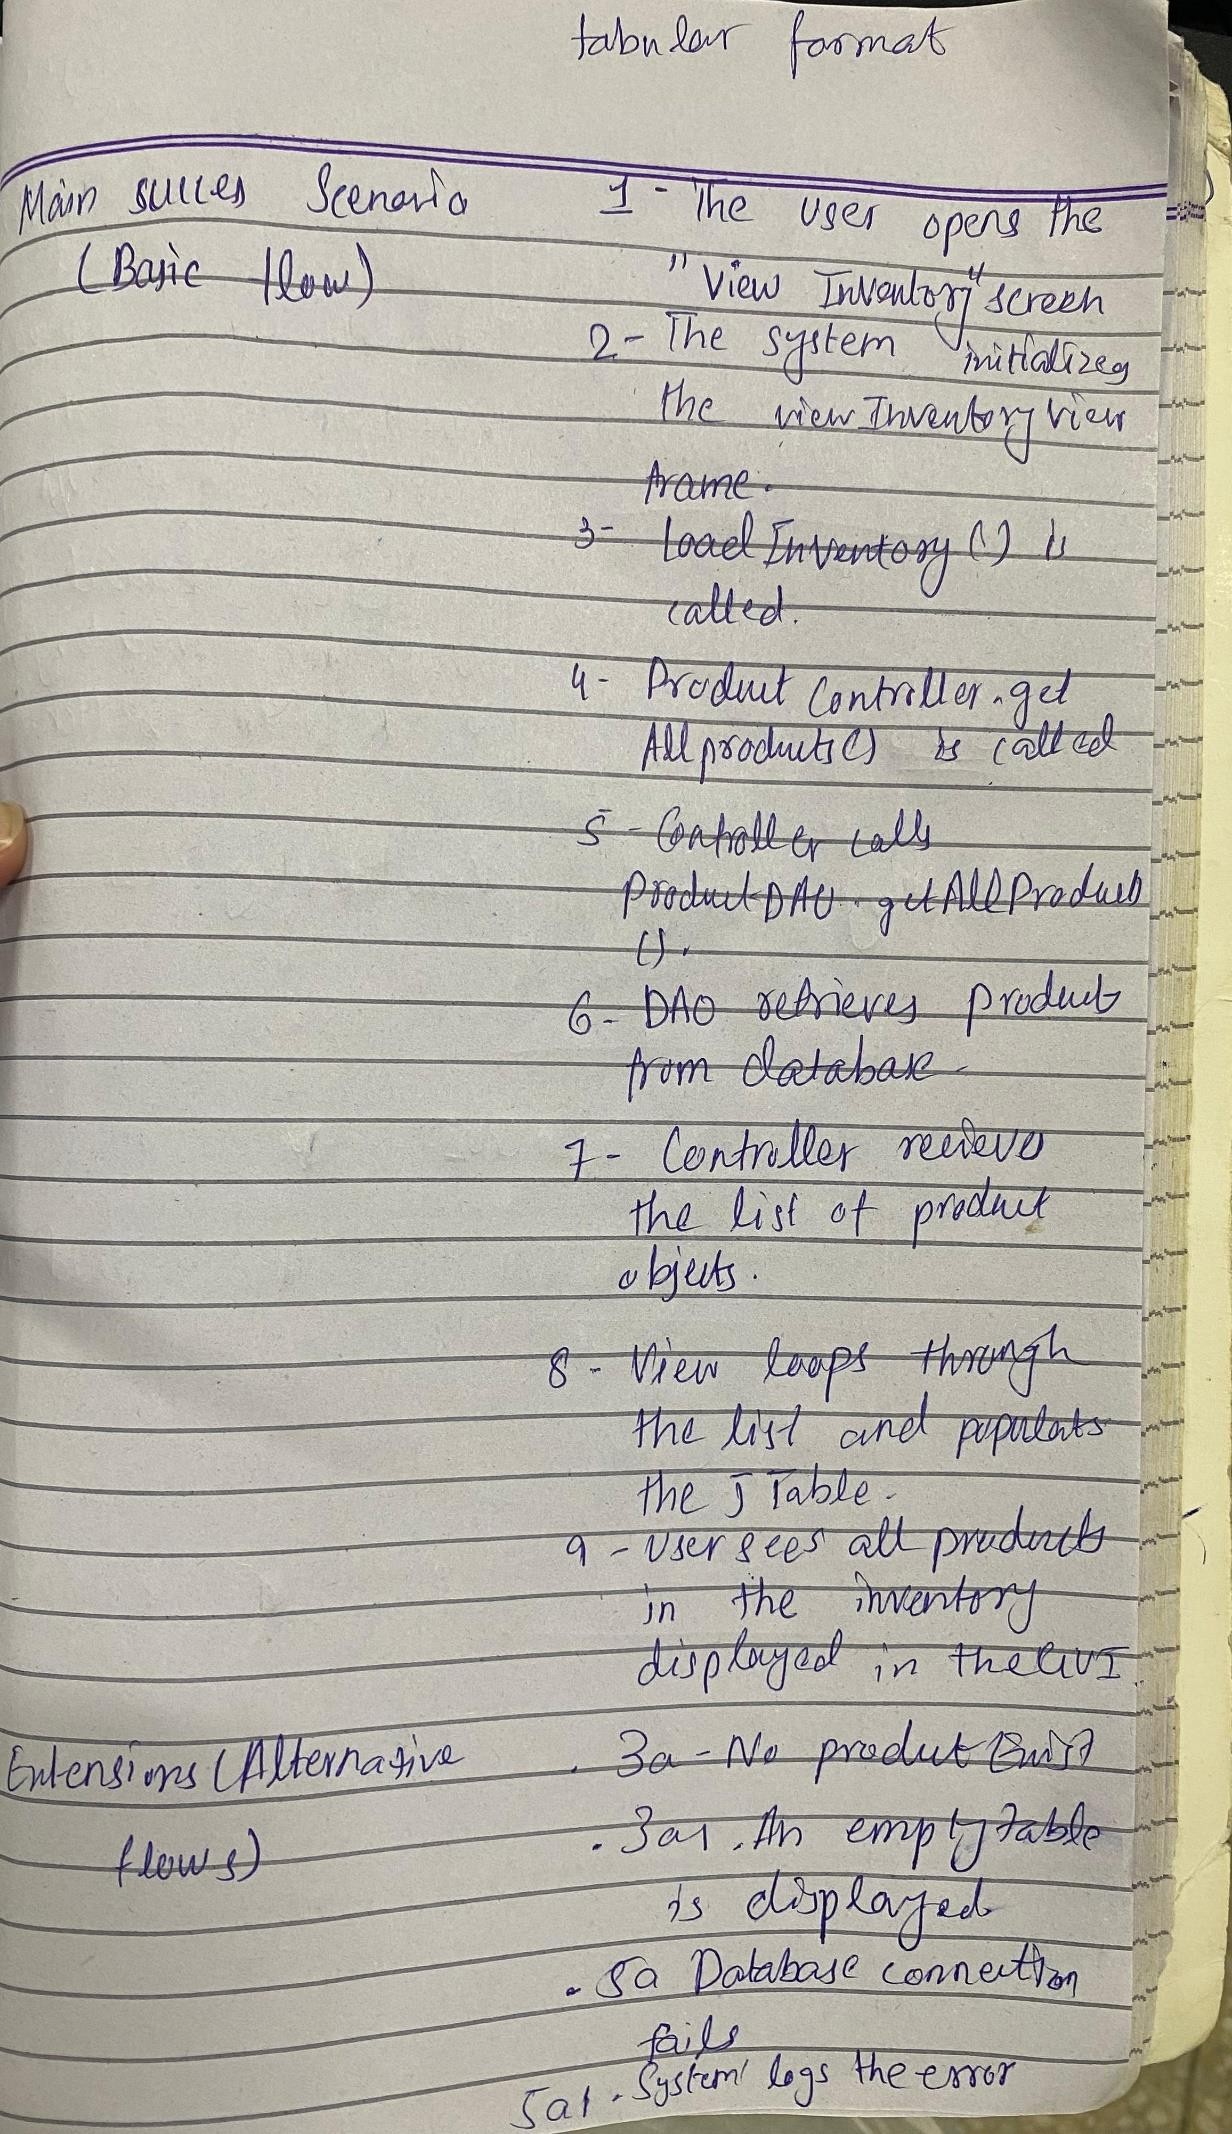 tabular format
Main succes Scenario 1 - The user opens the
(Basic flow) "View Inventory" screen
2 - The system initializes
the viewInventoryView
frame.
3 - load Inventory () is
called.
4 - Product Controller.get
Allproducts() is called
5 - Controller calls
ProductDAO.getAllProducts
().
6 - DAO retrieves product
from database.
7 - Controller recieves
the list of product
objects.
8 - View loops through
the list and populats
the J Table.
9 - user sees all products
in the inventory
displayed in the GUI.
Extensions (Alternative . 3a - No product Exist
flows) . 3a1 . An empty table
is displayed
. 5a Database connection
fails
5a1 . System logs the error